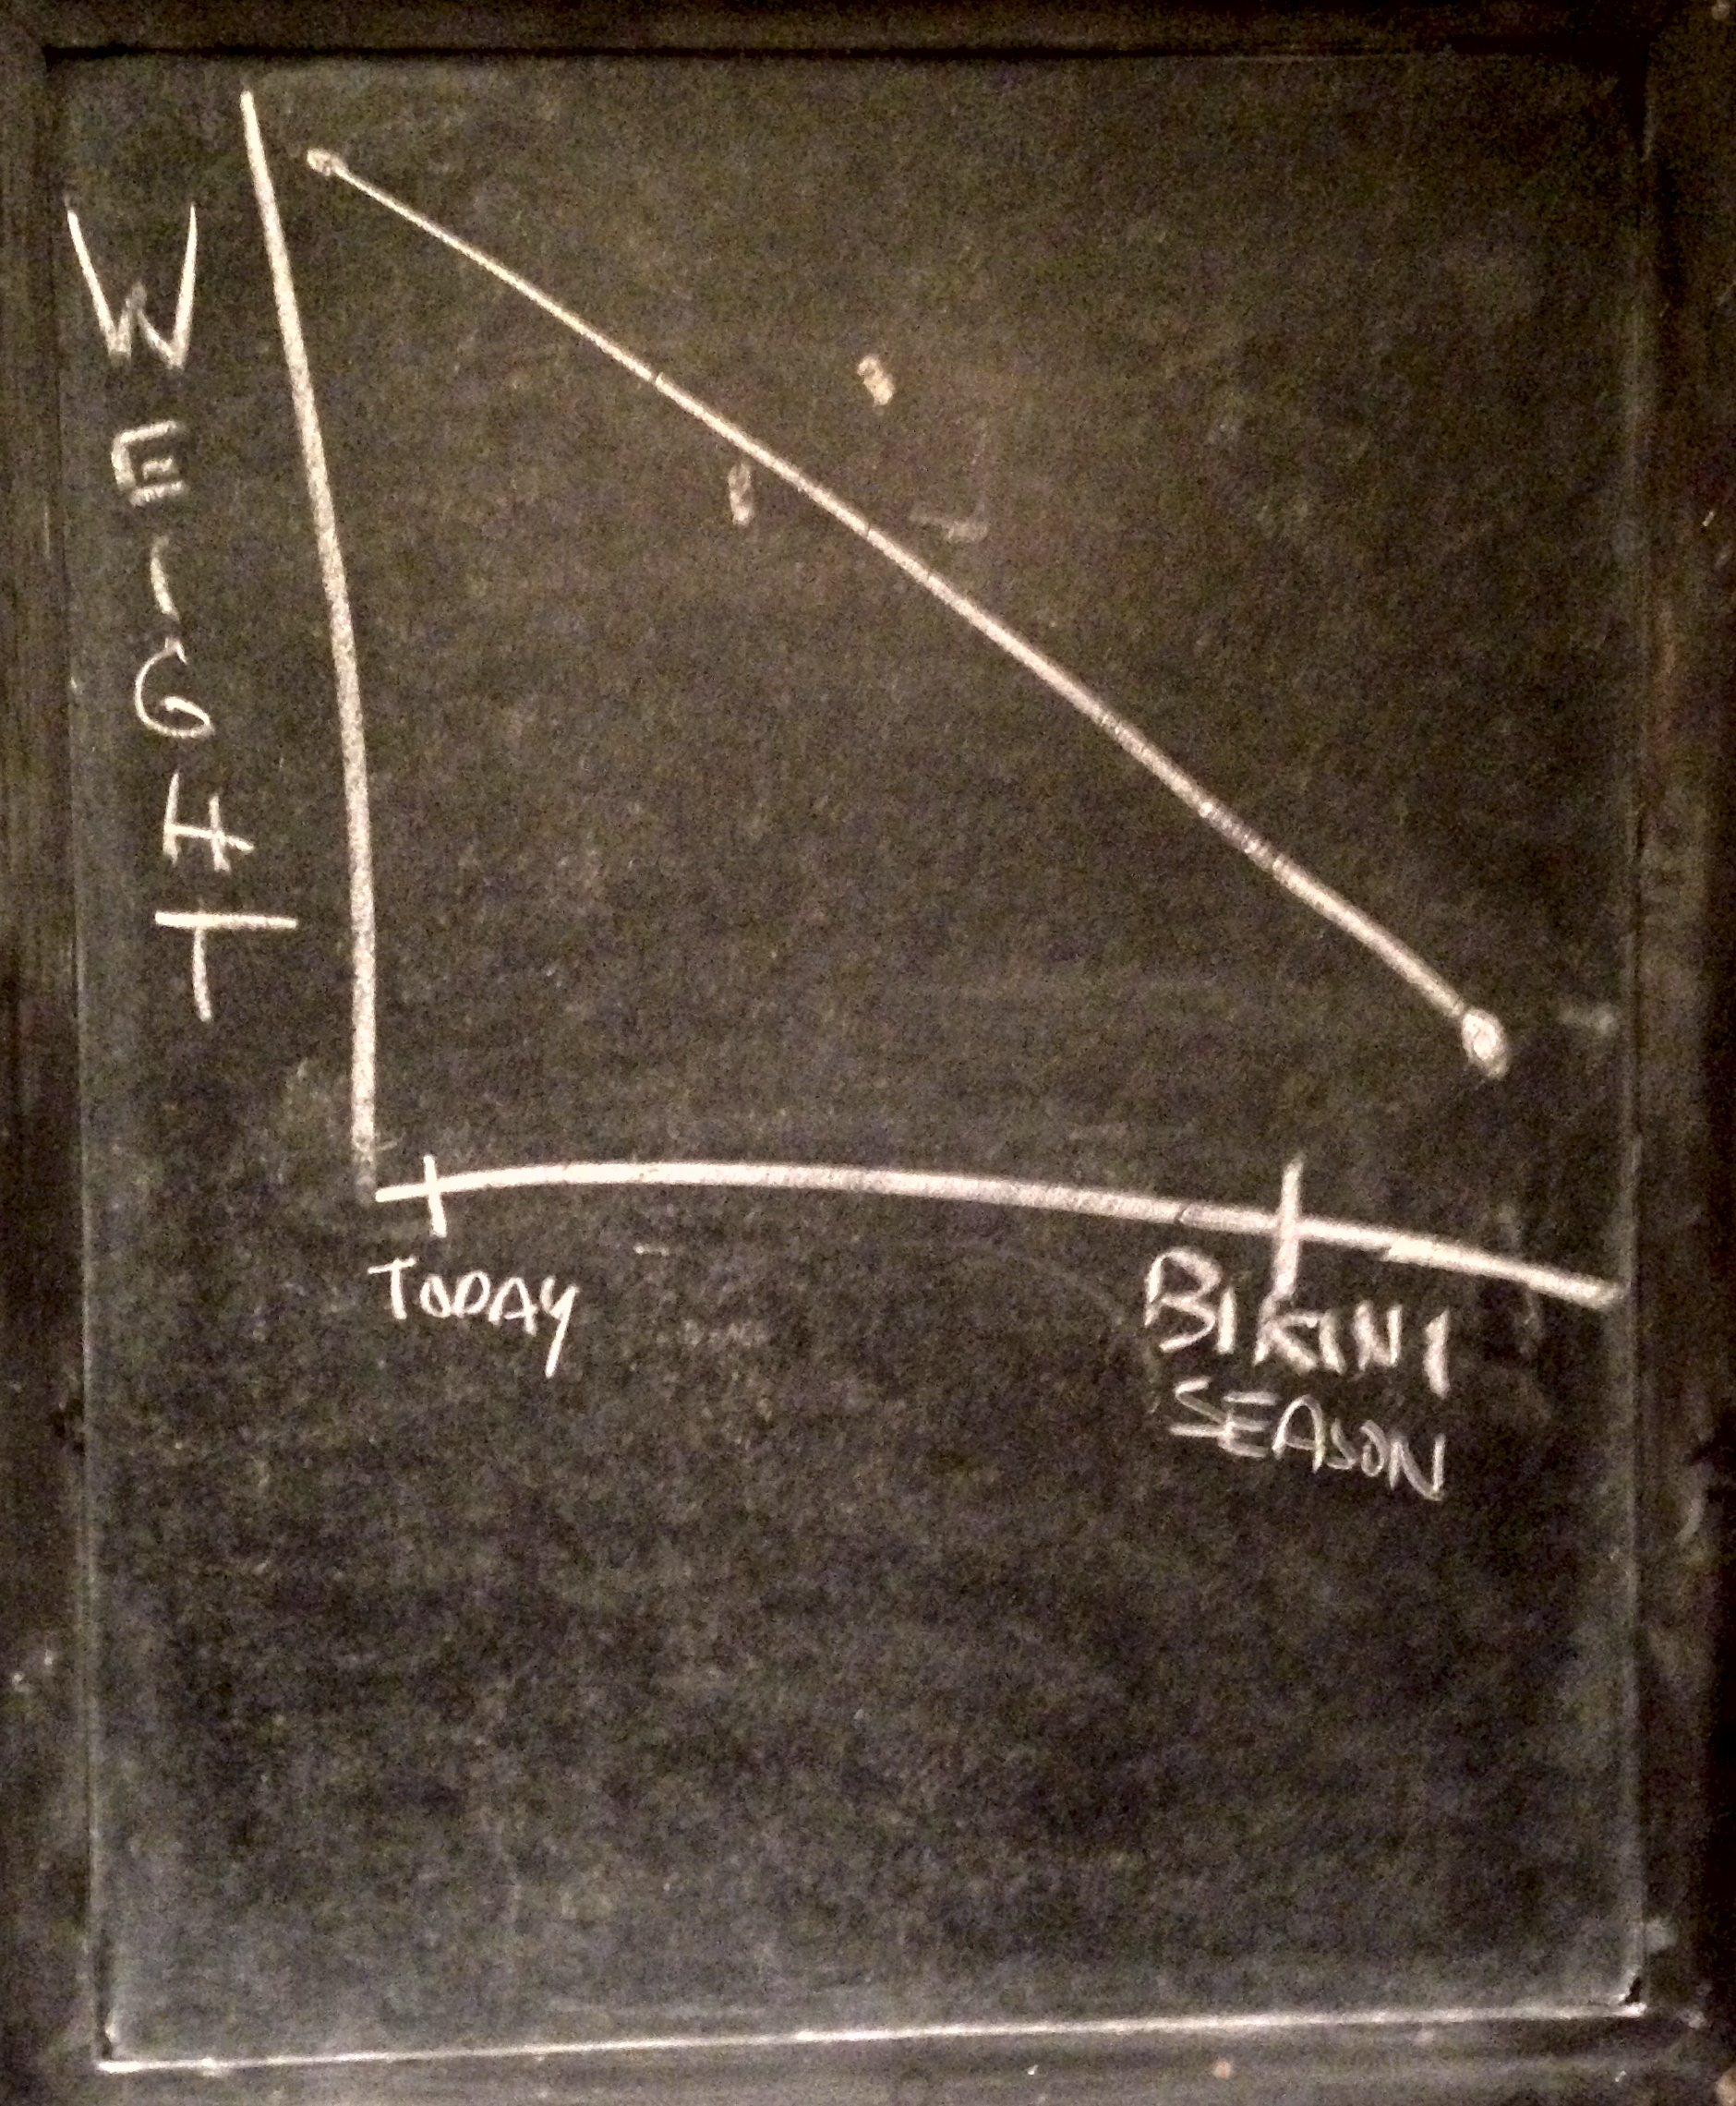 WEIGHT
TODAY
BIKINI
SEASON